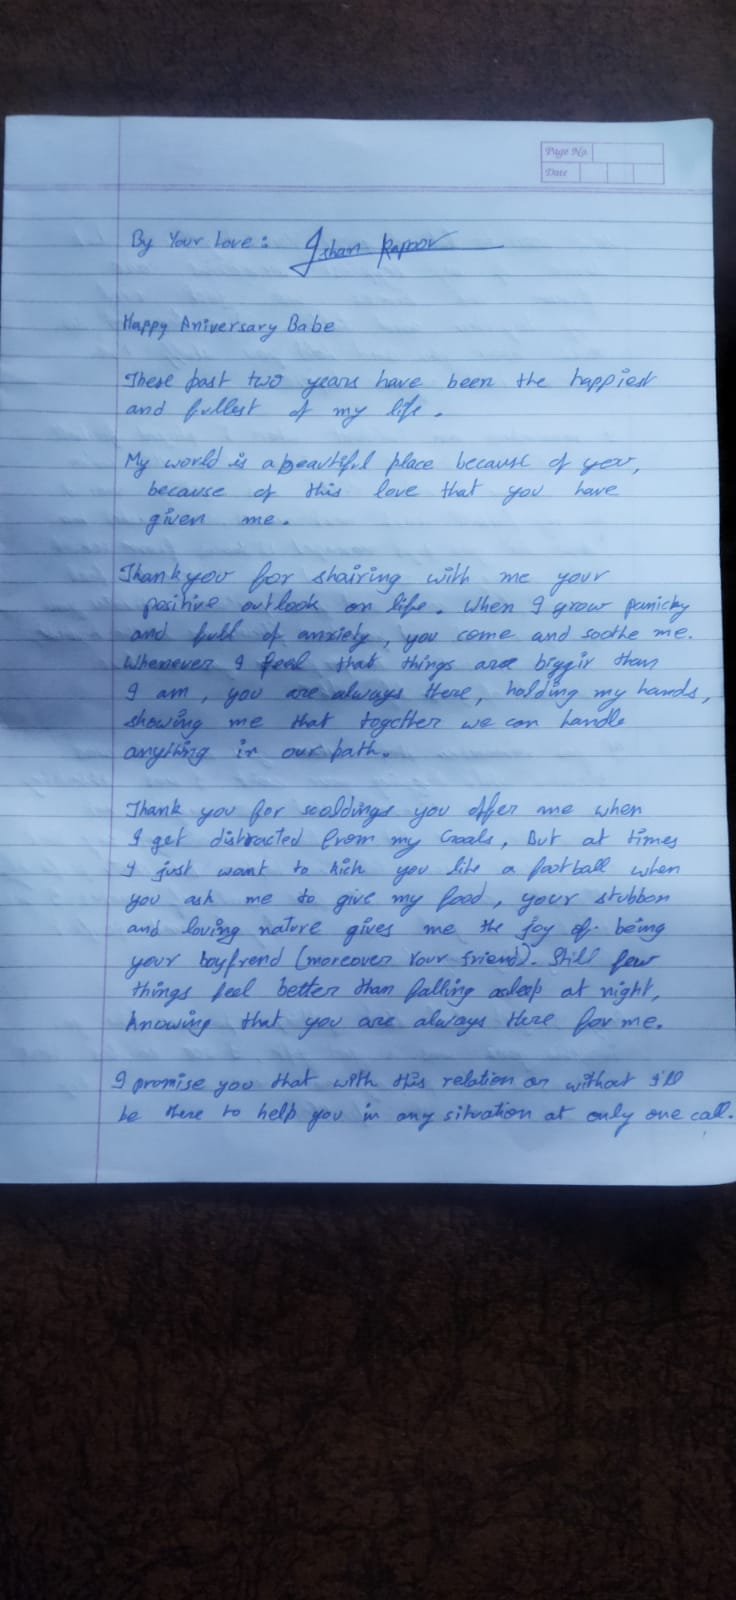 Page No.
Date
By Your Love: Ishan Kapoor
Happy Aniversary Babe
These past two years have been the happiest
and fullest of my life.
My world is a beautiful place because of you,
because of this love that you have
given me.
Thankyou for shairing with me your
positive outlook on life. When I grow panicky
and full of anxiety, you come and soothe me.
Whenever I feel that things are biggir than
I am, you are always there, holding my hands,
showing me that togther we can handle
anything in our path.
Thank you for scoldings you offer me when
I get distracted from my Goals, But at times
I just want to kick you like a football when
you ask me to give my food, your stubbon
and loving nature gives me the joy of being
your boyfrend (moreover Your friend). Still few
things feel better than falling asleep at night,
knowing that you are always there for me.
I promise you that with this relation or without I'll
be there to help you in any situation at only one call.